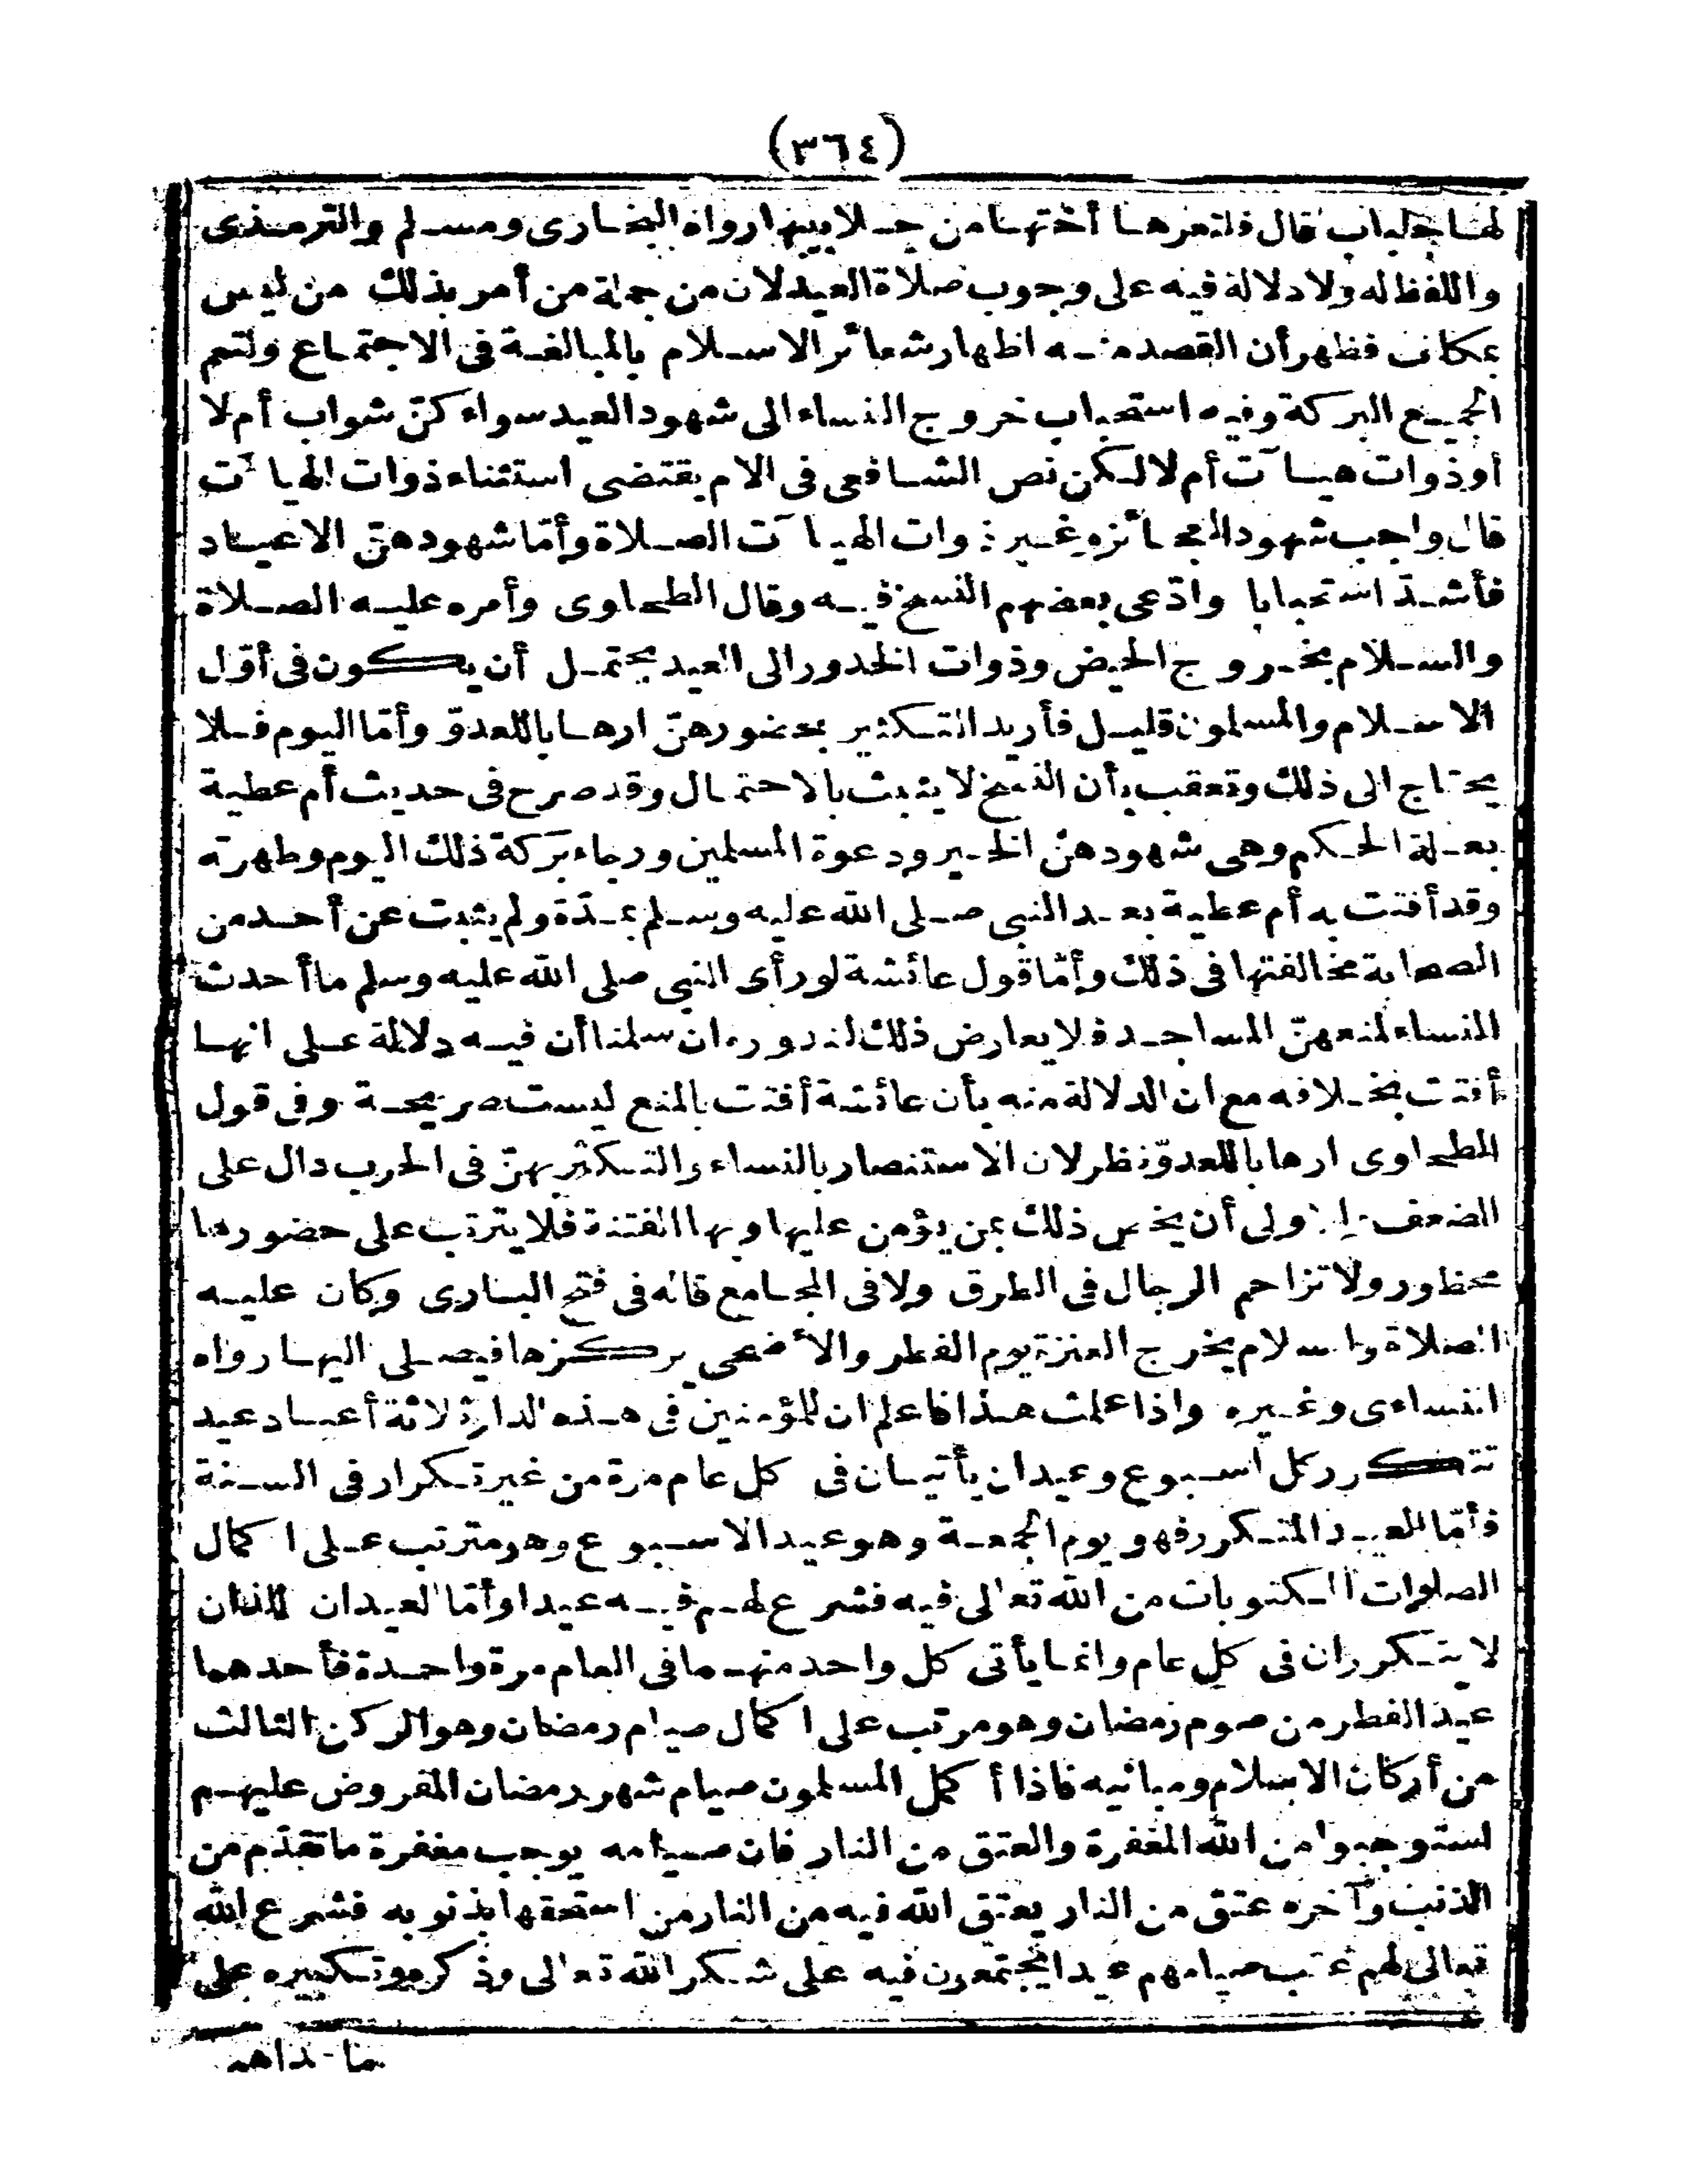 (٣٦٤)
لها جلباب قال فلتعرها أختها من جلابيبها رواه البخارى ومسلم والترمذى
واللفظ له ولا دلالة فيه على وجوب صلاة العيد لان من جملة من أمر بذلك من ليس
بمكلف فظهر أن القصد منه اظهار شعائر الاسلام بالمبالغة فى الاجتماع ولتعم
الجميع البركة وفيه استحباب خروج النساء الى شهود العيد سواء كنّ شواب أم لا
أو ذوات هيآت أم لا لكن نص الشافعى فى الام يقتضى استثناء ذوات الهيآت
قال واحب شهود العجائز وغير ذوات الهيآت الصلاة وأمّا شهودهنّ الاعياد
فأشدّ استحبابا وادّعى بعضهم النسخ فيه وقال الطحاوى وأمره عليه الصلاة
والسلام بخروج الحيض وذوات الخدور الى العيد يحتمل أن يكون فى أوّل
الاسلام والمسلمون قليل فأريد التكثير بحضورهنّ ارهابا للعدوّ وأمّا اليوم فلا
يحتاج الى ذلك وتعقب بأن النسخ لا يثبت بالاحتمال وقد صرح فى حديث أم عطية
بعلة الحكم وهى شهودهنّ الخير ودعوة المسلمين ورجاء بركة ذلك اليوم وطهرته
وقد أفتت به أم عطية بعد النبى صلى الله عليه وسلم بمدّة ولم يثبت عن أحد من
الصحابة مخالفتها فى ذلك وأمّا قول عائشة لو رأى النبى صلى الله عليه وسلم ما أحدث
النساء لمنعهنّ المساجد فلا يعارض ذلك لندوره ان سلمنا أن فيه دلالة على انها
أفتت بخلافه مع ان الدلالة منه بأن عائشة أفتت بالمنع ليست صريحة وفى قول
الطحاوى ارهابا للعدوّ نظر لان الاستنصار بالنساء والتكثر بهنّ فى الحرب دال على
الضعف والاولى أن يخص ذلك بمن يؤمن عليها وبها الفتنة فلا يترتب على حضورها
محظور ولا تزاحم الرجال فى الطرق ولا فى المجامع قاله فى فتح البارى وكان عليه
الصلاة والسلام يخرج العنزة يوم الفطر والأضحى يركزها فيصلى اليها رواه
النساءى وغيره واذا علمت هذا فاعلم ان للمؤمنين فى هذه الدار ثلاثة أعياد عيد
يتكرر كل أسبوع وعيدان يأتيان فى كل عام مرة من غير تكرار فى السنة
فأمّا العيد المتكرر فهو يوم الجمعة وهو عيد الاسبوع وهو مترتب على اكمال
الصلوات المكتوبات من الله تعالى فيه فشرع لهم فيه عيدا وأمّا العيدان اللذان
لا يتكرران فى كل عام وانما يأتى كل واحد منهما فى العام مرة واحدة فأحدهما
عيد الفطر من صوم رمضان وهو مرتب على اكمال صيام رمضان وهو الركن الثالث
من أركان الاسلام ومبانيه فاذا أكمل المسلمون صيام شهر رمضان المفروض عليهم
استوجبوا من الله المغفرة والعتق من النار فان صيامه يوجب مغفرة ما تقدّم من
الذنب وآخره عتق من النار يعتق الله فيه من النار من استحقها بذنوبه فشرع الله
تعالى لهم عقب صيامهم عيدا يجتمعون فيه على شكر الله تعالى وذكره وتكبيره على
ما هداهم